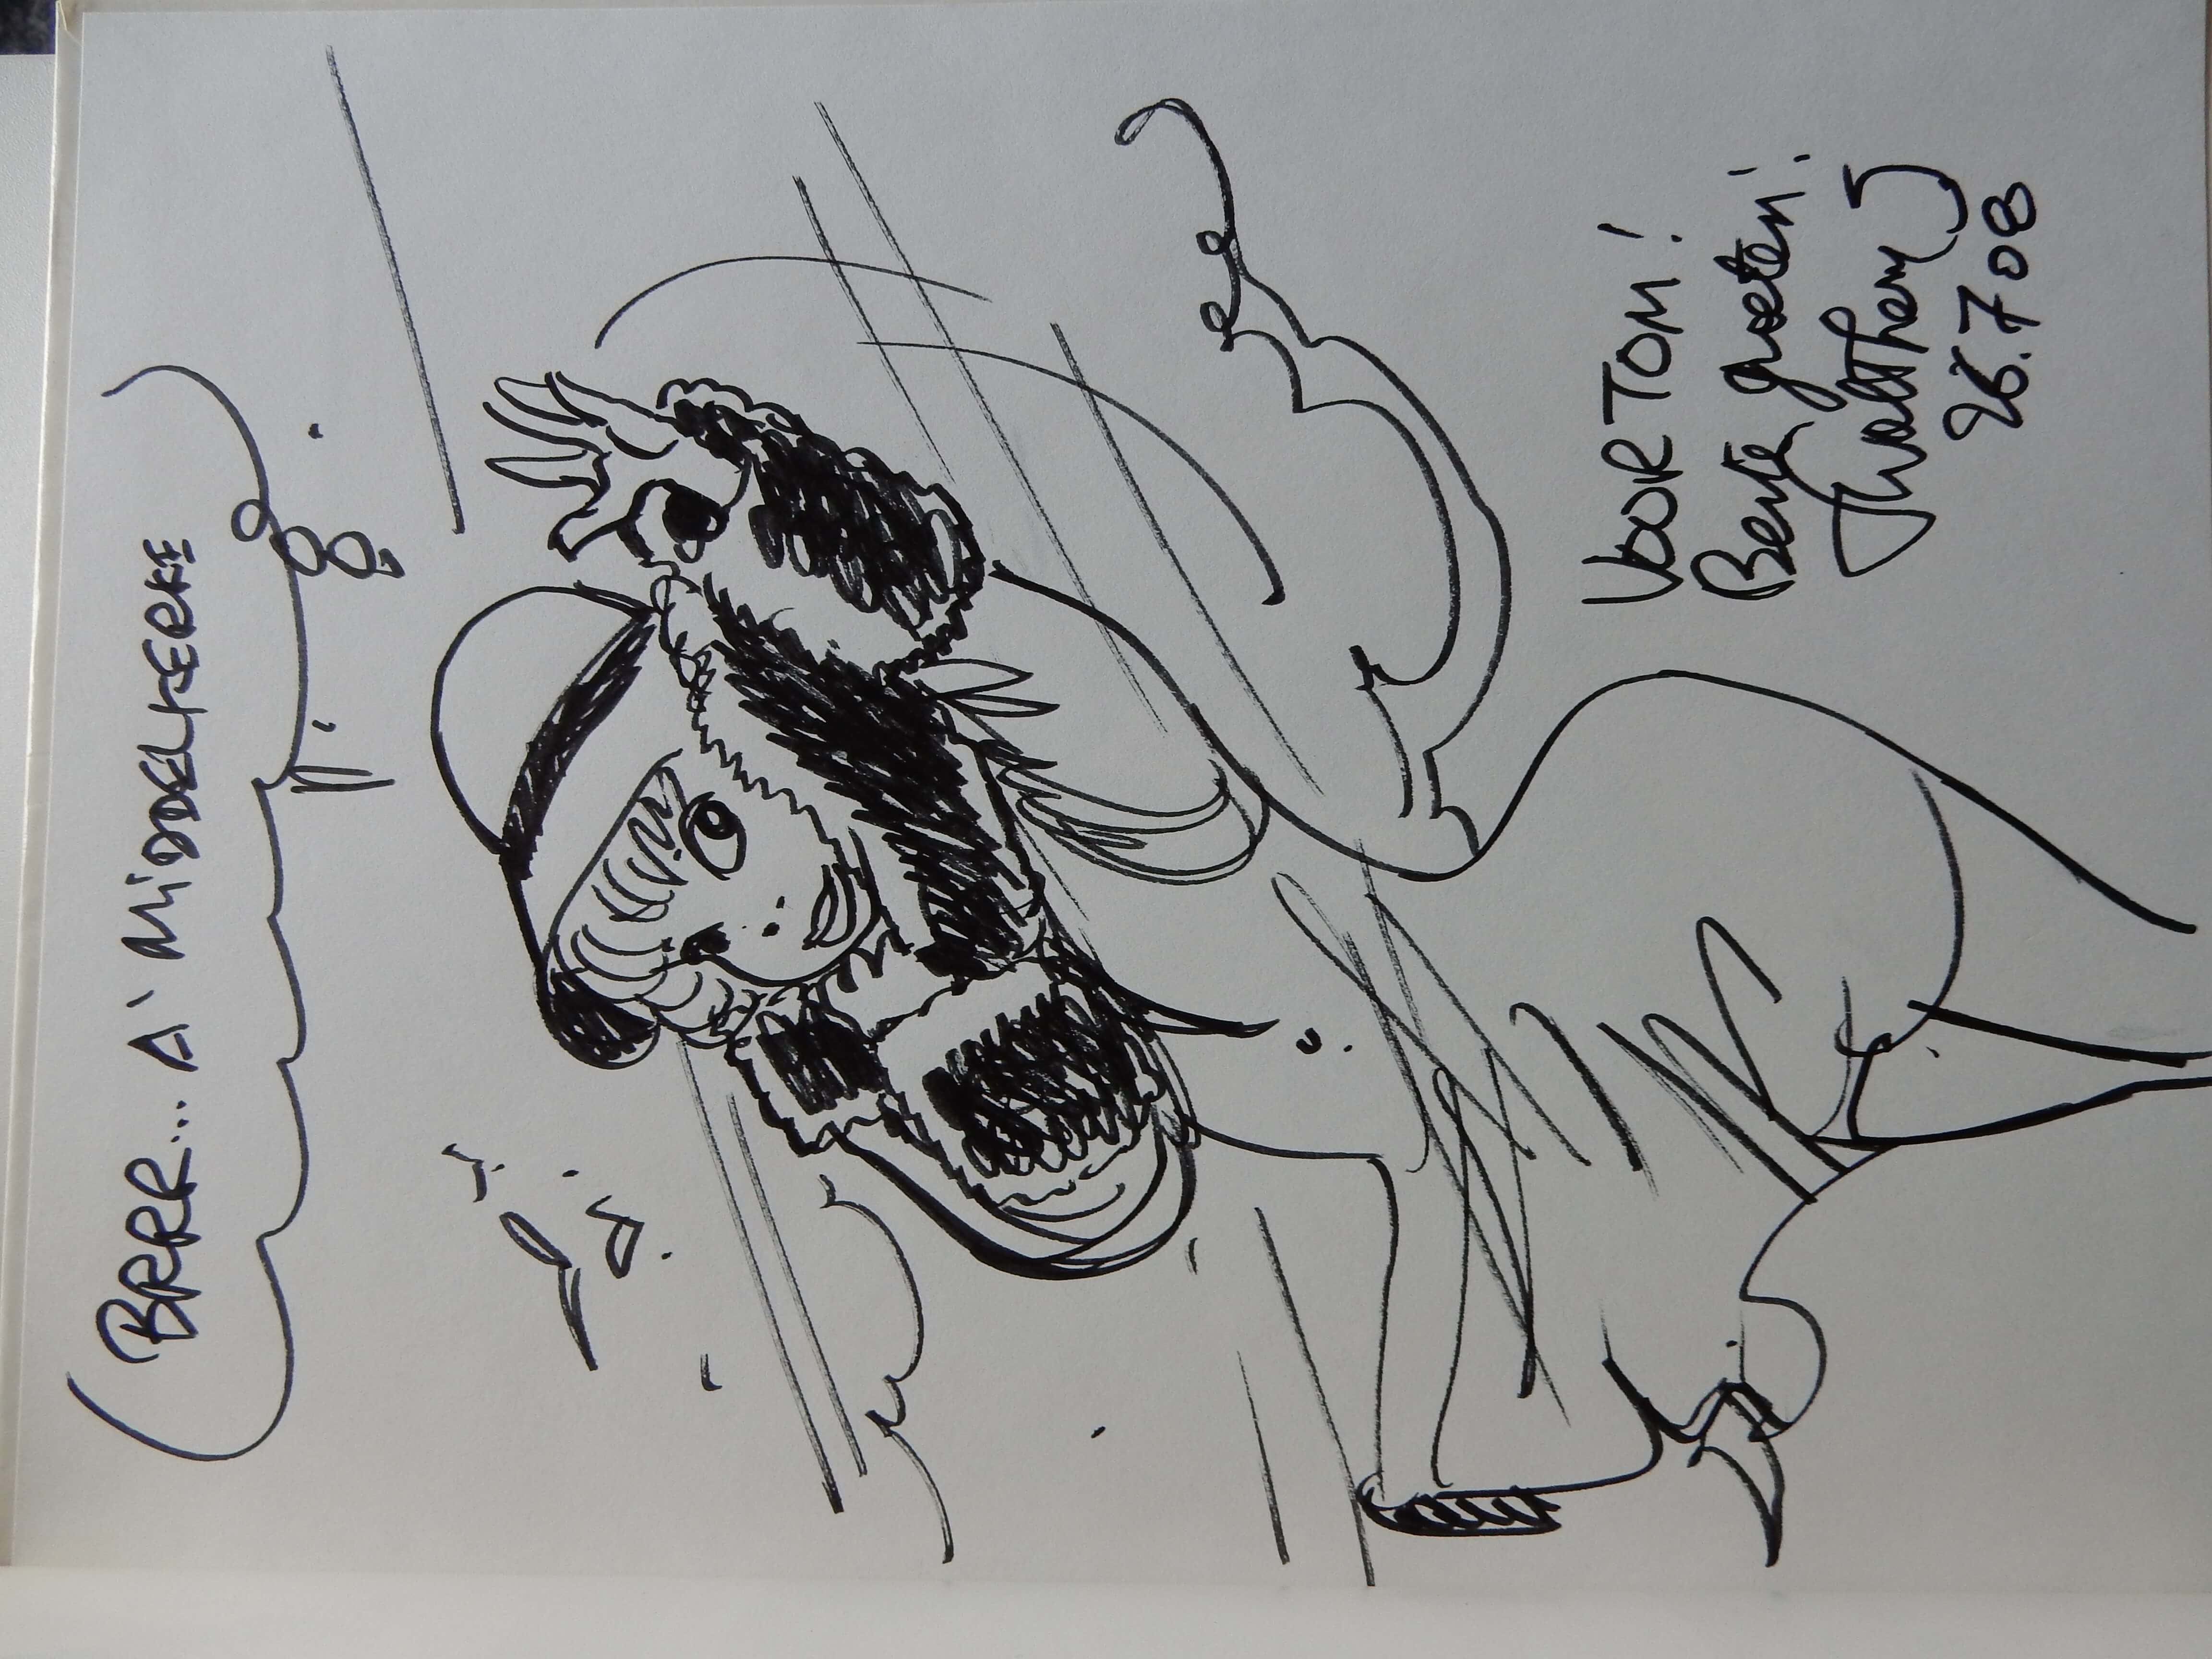 BRRR... A' MiDDELKERKE
VOOR TOM!
Beste groeten!
Walthery
26.7 08